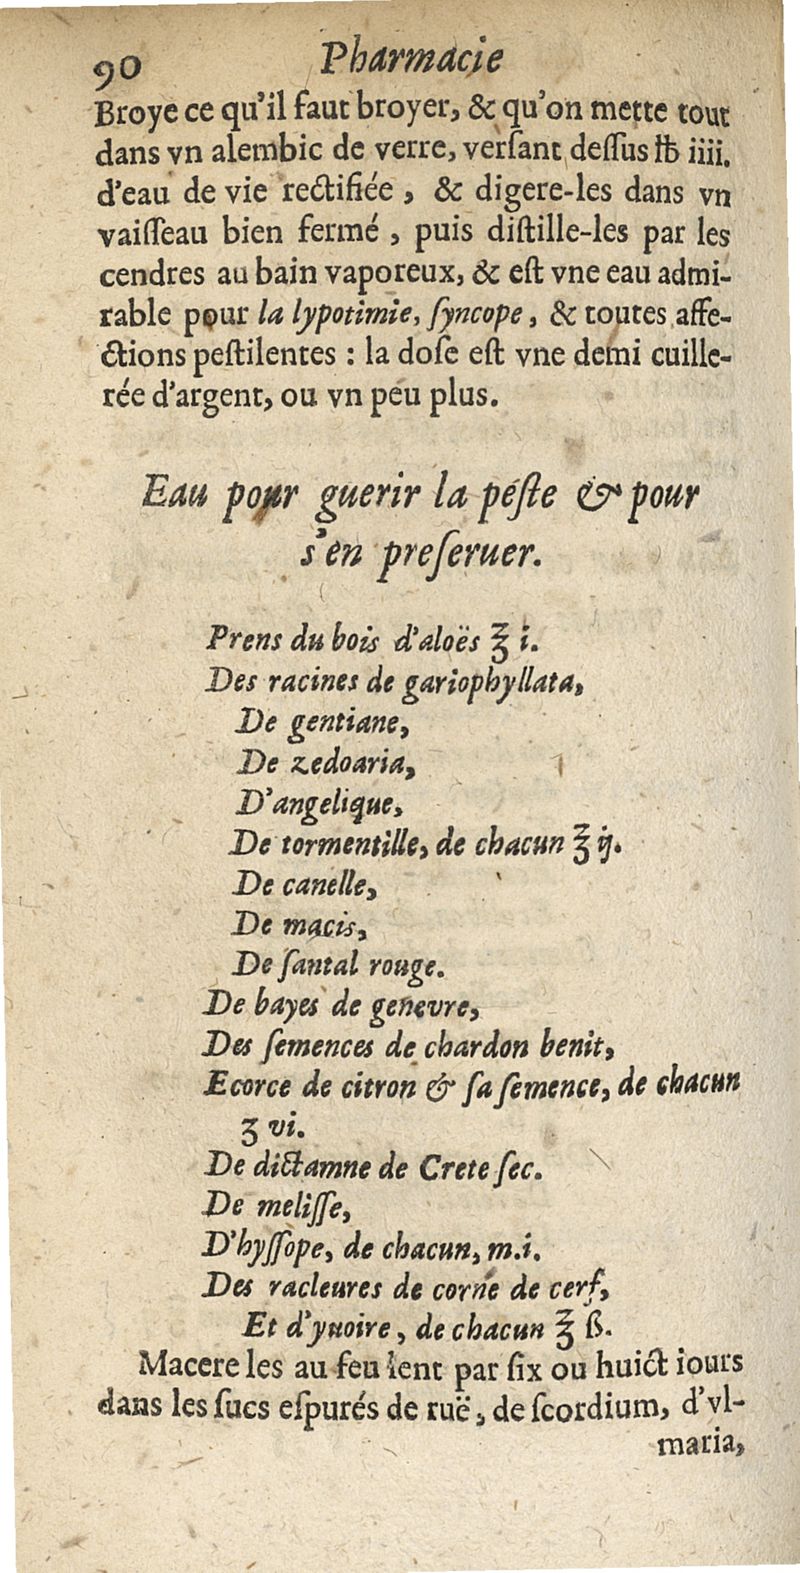 90 Pharmacie
Broye ce qu'il faut broyer, & qu'on mette tout
dans vn alembic de verre, verſant deſſus ℔ iiii.
d'eau de vie rectifiée, & digere-les dans vn
vaiſſeau bien fermé, puis diſtille-les par les
cendres au bain vaporeux, & eſt vne eau admi-
rable pour la lypotimie, ſyncope, & toutes affe-
ctions peſtilentes : la doſe eſt vne demi cuille-
rée d'argent, ou vn peu plus.
Eau pour guerir la peſte & pour
s'en preſeruer.
Prens du bois d'aloës ℥ i.
Des racines de gariophyllata,
De gentiane,
De zedoaria,
D'angelique,
De tormentille, de chacun ℥ ij.
De canelle,
De macis,
De ſantal rouge.
De bayes de genevre,
Des ſemences de chardon benit,
Ecorce de citron & ſa ſemence, de chacun
ʒ vi.
De dictamne de Crete ſec.
De meliſſe,
D'hyſſope, de chacun, m.i.
Des racleures de corne de cerf,
Et d'yuoire, de chacun ℥ ß.
Macere les au feu lent par ſix ou huict iours
dans les ſucs eſpurés de ruë, de ſcordium, d'vl-
maria,